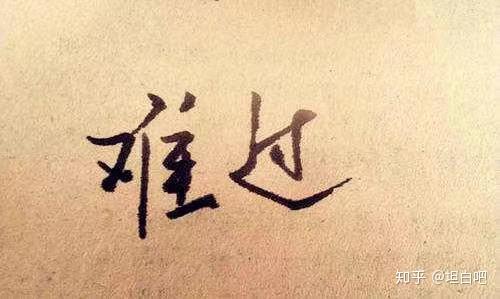 难过
知乎 @坦白吧